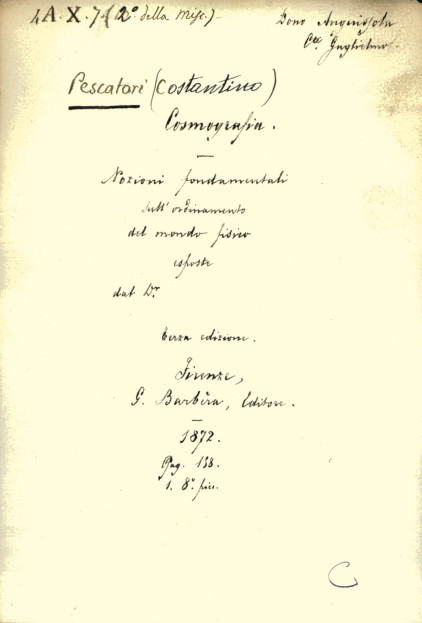 4A.X.7 (2º della Misc.)
Dono Anguissola
Cte Guglielmo.
Pescatori (Costantino)
Cosmografia.
Nozioni fondamentali
sull'ordinamento
del mondo fisico
esposte
dal Dr
terza edizione.
Firenze,
G. Barbèra, Editore.
1872.
Pag. 138.
1. 8º picc.
C